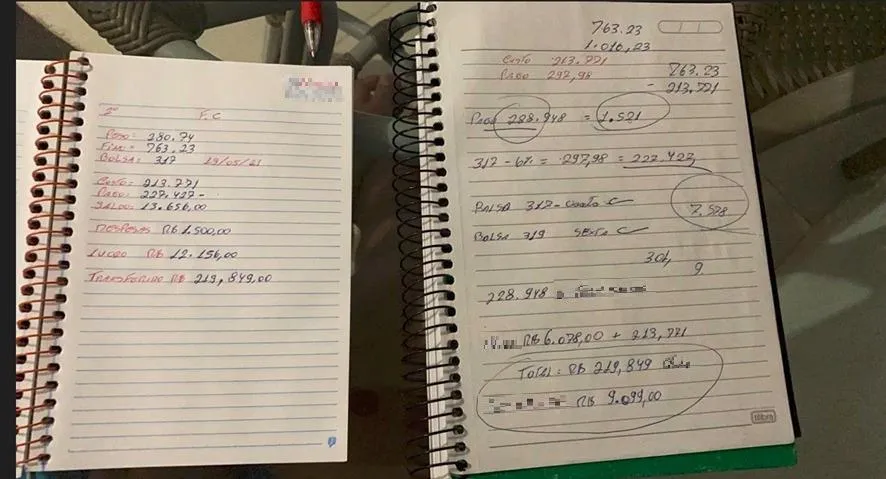 1º F.C
PESO: 280.74
FINO: 763.23
BOLSA: 317 19/05/21
CUSTO: 213.771
PAGO: 227.427-
SALDO: 13.656,00
DESPESAS R$ 1.500,00
LUCRO R$ 12.156,00
TRANSFERIDO R$ 219,849,00
763.23
1.016,23
CUSTO 213.771
PAGO 297,98
763.23
- 213.771
PAGO 228.948 = 1.521
317 - 6% = 297,98 = 227,427
BALSA 317 - QUARTA C
7.578
BOLSA 319 SEXTA C
301,
9.
228.948
R$ 6.078,00 + 213,771
TOTAL: R$ 219,849
R$ 9.099,00
tilibra